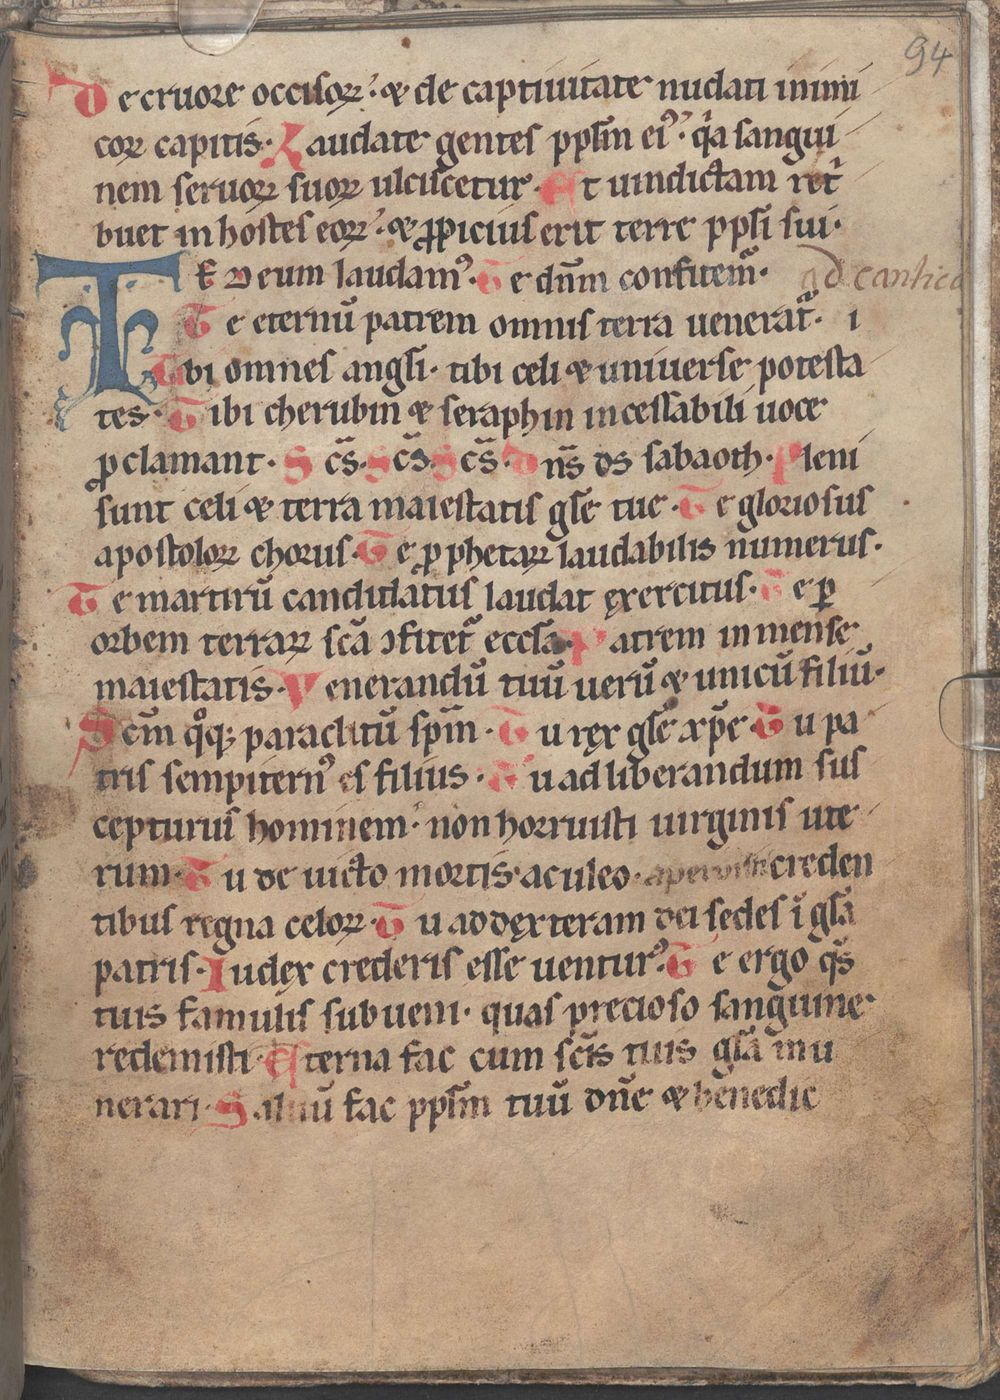 94
De cruore occisoꝝ · ⁊ de captiuitate nudati inimi
coꝝ capitis · Laudate gentes pp̄lm eiꝰ · q̓a sangui
nem seruoꝝ suoꝝ ulciscetur · Et uindictam ret̓
buet in hostes eoꝝ · ⁊ ꝓpicius erit terre pp̄li sui ·
TE Deum laudamꝰ · Te dn̄m confitem᷑ · ad cantica
Te eternū patrem omnis terra uenerat᷑ · i
Tibi omnes angl̄i · tibi celi ⁊ uniuerse potesta
tes · Tibi cherubin ⁊ seraphin incessabili uoce
ꝓclamant · Sc̄s · Sc̄s · Sc̄s · Dn̄s ds̄ sabaoth · Pleni
sunt celi ⁊ terra maiestatis gl̄e tue · Te gloriosus
apostoloꝝ chorus · Te ꝓphetaꝝ laudabilis numerus ·
Te martirū candidatus laudat ęxercitus · Te ꝑ
orbem terraꝝ sc̄a ↄfitet᷑ eccl̄a · Patrem inmense
maiestatis · Venerandū tuū uerū ⁊ unicū filiū ·
Sc̄m qͦqꝫ paraclitū sp̄m · Tu ręx gl̄e xp̄e · Tu pa
tris sempiternꝰ es filius · Tu ad liberandum sus
cepturus hominem · non horruisti uirginis ute
rum · Tu deuicto mortis · aculeo · aperuisti creden
tibus regna celoꝝ · Tu ad dęxteram dei sedes ī gl̄a
patris · Iudęx crederis esse uenturꝰ · Te ergo qs̄
tuis famulis subueni · quas precioso sanguine
redemisti · Eterna fac cum sc̄is tuis gl̄a mu
nerari · Saluū fac pp̄lm tuū dn̄e ⁊ benedic